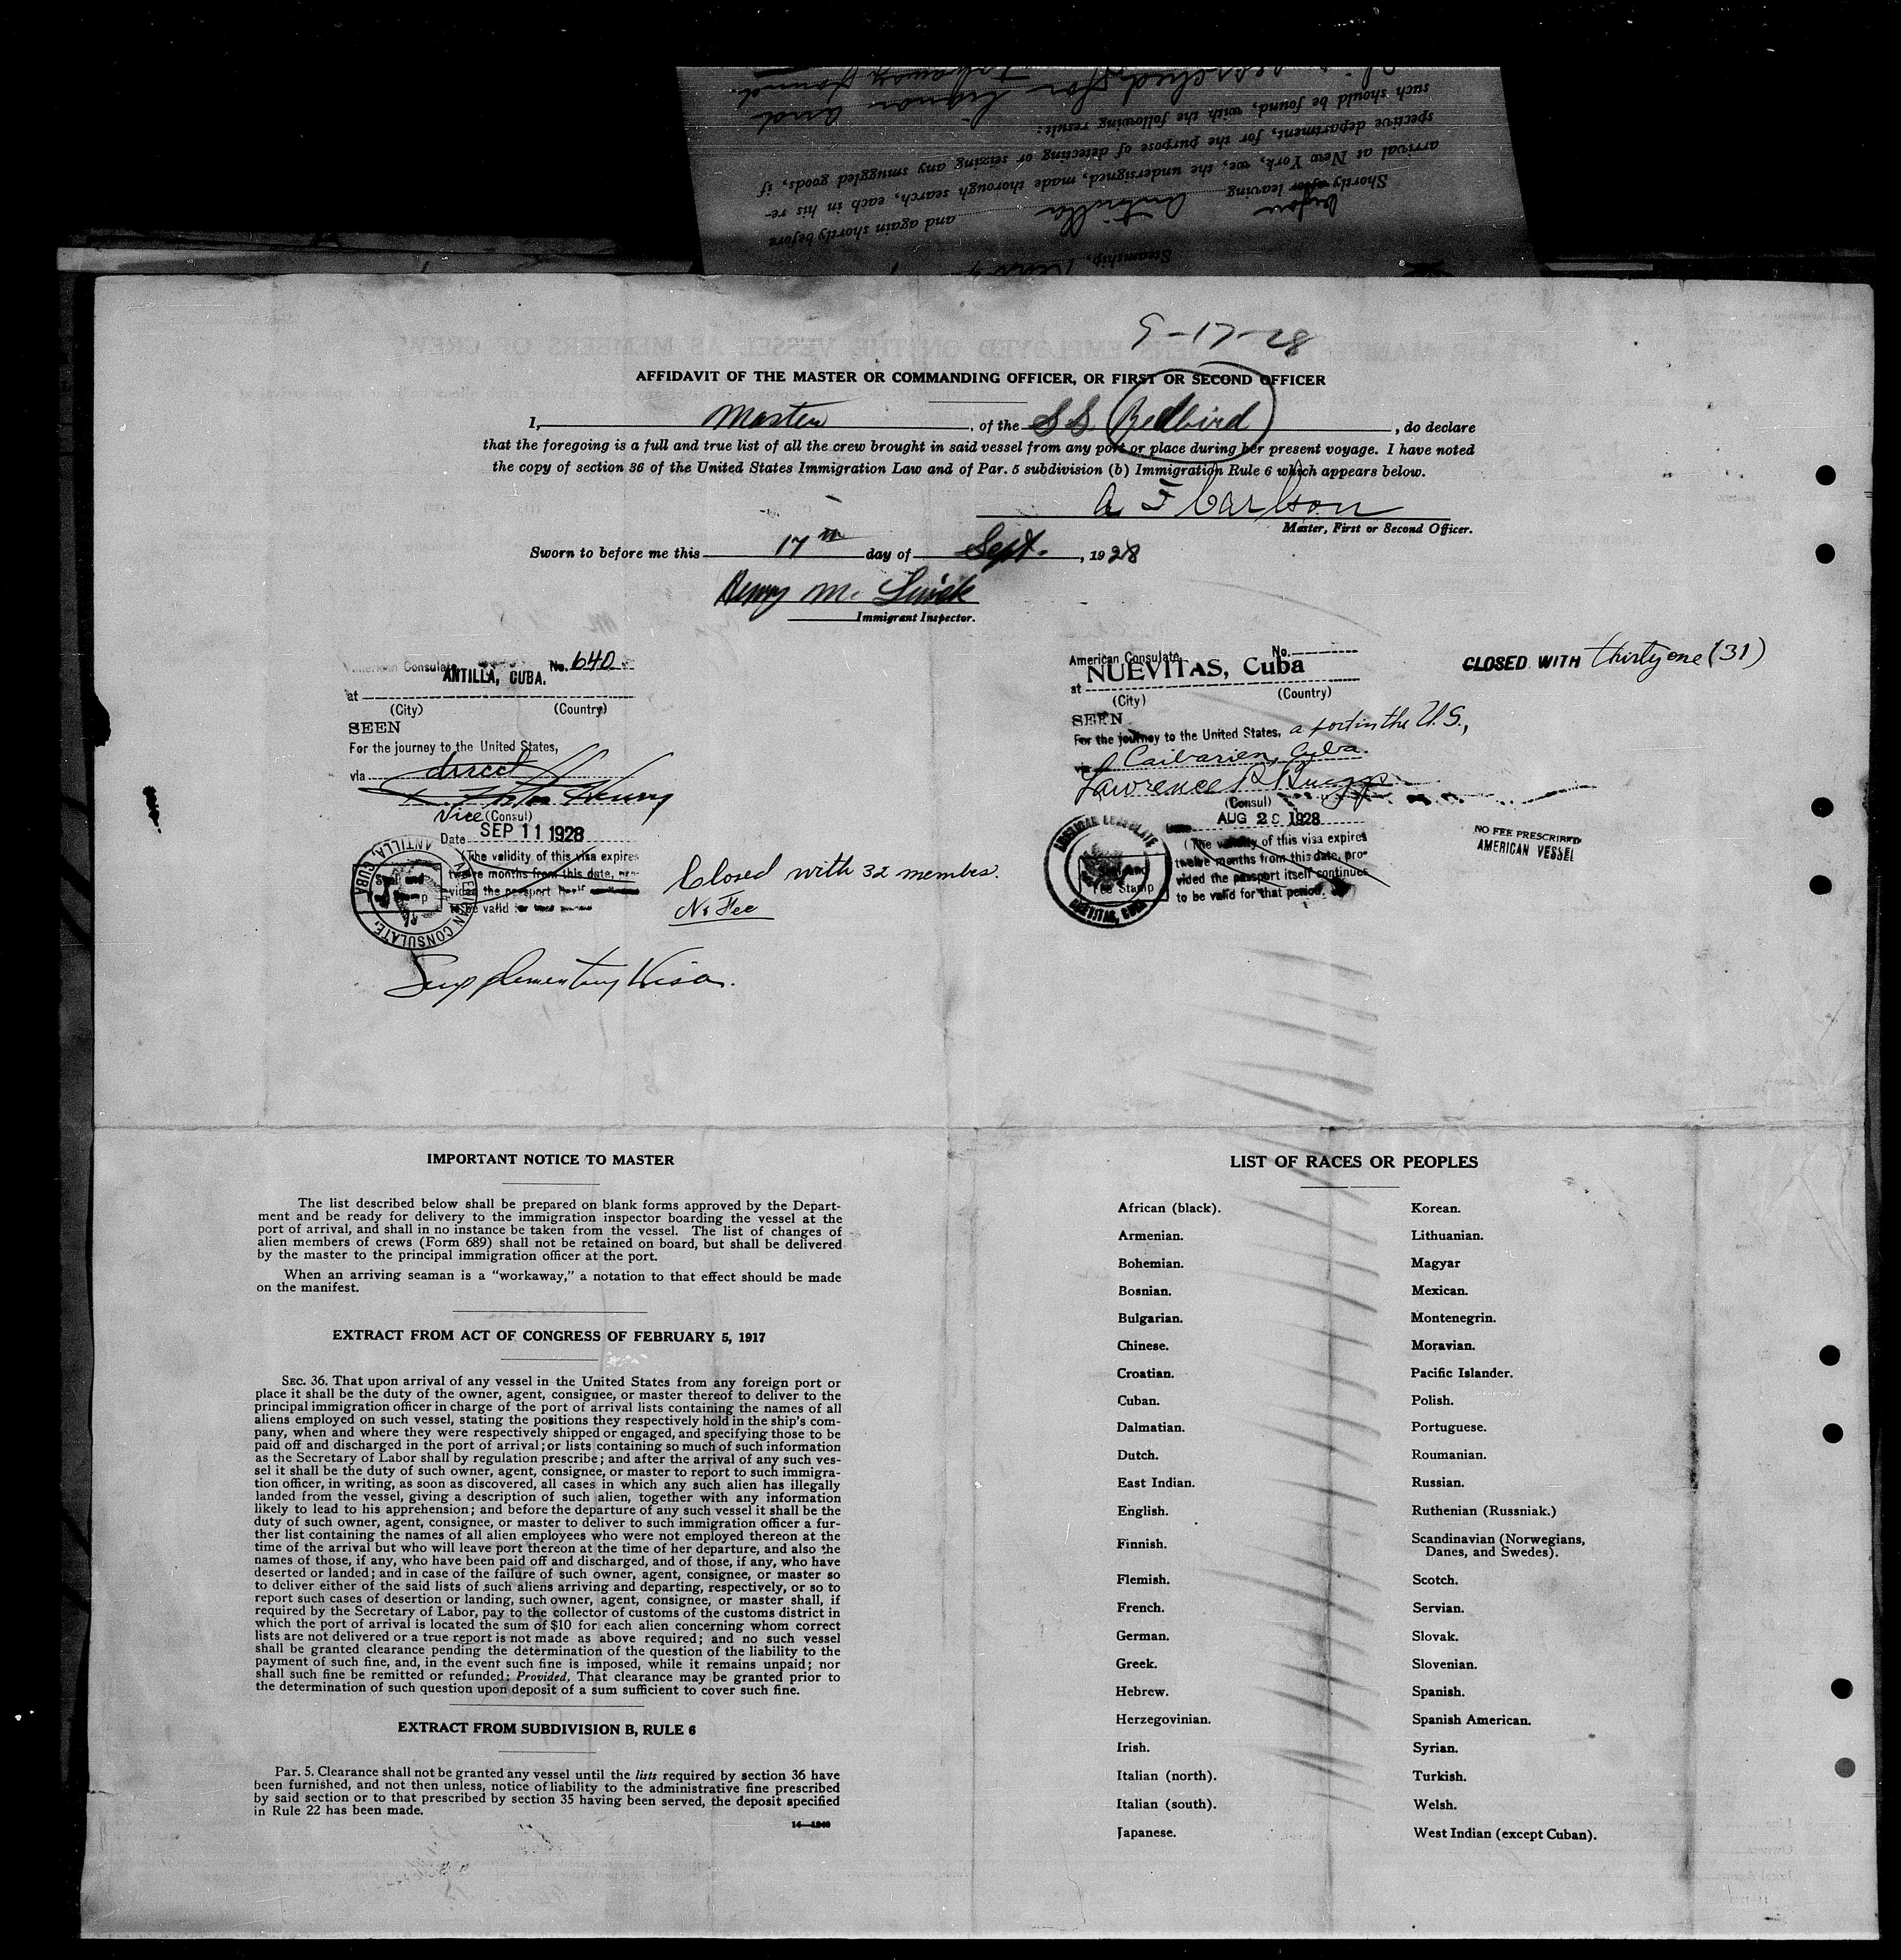 such should be found, with the following result:
spective department, for the purpose of detecting or seizing any smuggled goods, if
arrival at New York, we, the undersigned, made thorough search, each in his re-
Shortly after leaving Antilla and again shortly before
before
Steamship,
9-17-28
AFFIDAVIT OF THE MASTER OR COMMANDING OFFICER, OR FIRST OR SECOND OFFICER
I, Master, of the SS Redbird, do declare
that the foregoing is a full and true list of all the crew brought in said vessel from any port or place during her present voyage. I have noted
the copy of section 36 of the United States Immigration Law and of Par. 5 subdivision (b) Immigration Rule 6 which appears below.
A F Carlson
Master, First or Second Officer.
Sworn to before me this 17th day of Sept., 1928
Henry M.
Immigrant Inspector.
American Consulate No. 640
ANTILLA, CUBA.
at
(City) (Country)
SEEN
For the journey to the United States,
via direct
Vice (Consul)
Date SEP 11 1928
(The validity of this visa expires
twelve months from this date, pro-
vided the passport itself
to be valid for
AMERICAN CONSULATE, ANTILLA, CUBA
Closed with 32 members.
No Fee
Supplementary Visa.
American Consulate No.
NUEVITAS, Cuba
at
(City) (Country)
SEEN
For the journey to the United States, a port in the U.S.,
via Caibarien, Cuba.
Lawrence P. Briggs
(Consul)
Date AUG 2 1928
(The validity of this visa expires
twelve months from this date, pro-
vided the passport itself continues
to be valid for that period.
AMERICAN CONSULATE
NUEVITAS, CUBA
Fee Stamp
CLOSED WITH thirty one (31)
NO FEE PRESCRIBED
AMERICAN VESSEL
IMPORTANT NOTICE TO MASTER
The list described below shall be prepared on blank forms approved by the Depart-
ment and be ready for delivery to the immigration inspector boarding the vessel at the
port of arrival, and shall in no instance be taken from the vessel. The list of changes of
alien members of crews (Form 689) shall not be retained on board, but shall be delivered
by the master to the principal immigration officer at the port.
When an arriving seaman is a "workaway," a notation to that effect should be made
on the manifest.
EXTRACT FROM ACT OF CONGRESS OF FEBRUARY 5, 1917
SEC. 36. That upon arrival of any vessel in the United States from any foreign port or
place it shall be the duty of the owner, agent, consignee, or master thereof to deliver to the
principal immigration officer in charge of the port of arrival lists containing the names of all
aliens employed on such vessel, stating the positions they respectively hold in the ship's com-
pany, when and where they were respectively shipped or engaged, and specifying those to be
paid off and discharged in the port of arrival; or lists containing so much of such information
as the Secretary of Labor shall by regulation prescribe; and after the arrival of any such ves-
sel it shall be the duty of such owner, agent, consignee, or master to report to such immigra-
tion officer, in writing, as soon as discovered, all cases in which any such alien has illegally
landed from the vessel, giving a description of such alien, together with any information
likely to lead to his apprehension; and before the departure of any such vessel it shall be the
duty of such owner, agent, consignee, or master to deliver to such immigration officer a fur-
ther list containing the names of all alien employees who were not employed thereon at the
time of the arrival but who will leave port thereon at the time of her departure, and also the
names of those, if any, who have been paid off and discharged, and of those, if any, who have
deserted or landed; and in case of the failure of such owner, agent, consignee, or master so
to deliver either of the said lists of such aliens arriving and departing, respectively, or so to
report such cases of desertion or landing, such owner, agent, consignee, or master shall, if
required by the Secretary of Labor, pay to the collector of customs of the customs district in
which the port of arrival is located the sum of $10 for each alien concerning whom correct
lists are not delivered or a true report is not made as above required; and no such vessel
shall be granted clearance pending the determination of the question of the liability to the
payment of such fine, and, in the event such fine is imposed, while it remains unpaid; nor
shall such fine be remitted or refunded: Provided, That clearance may be granted prior to
the determination of such question upon deposit of a sum sufficient to cover such fine.
EXTRACT FROM SUBDIVISION B, RULE 6
Par. 5. Clearance shall not be granted any vessel until the lists required by section 36 have
been furnished, and not then unless, notice of liability to the administrative fine prescribed
by said section or to that prescribed by section 35 having been served, the deposit specified
in Rule 22 has been made.
LIST OF RACES OR PEOPLES
African (black).
Armenian.
Bohemian.
Bosnian.
Bulgarian.
Chinese.
Croatian.
Cuban.
Dalmatian.
Dutch.
East Indian.
English.
Finnish.
Flemish.
French.
German.
Greek.
Hebrew.
Herzegovinian.
Irish.
Italian (north).
Italian (south).
Japanese.
Korean.
Lithuanian.
Magyar
Mexican.
Montenegrin.
Moravian.
Pacific Islander.
Polish.
Portuguese.
Roumanian.
Russian.
Ruthenian (Russniak.)
Scandinavian (Norwegians,
Danes, and Swedes).
Scotch.
Servian.
Slovak.
Slovenian.
Spanish.
Spanish American.
Syrian.
Turkish.
Welsh.
West Indian (except Cuban).